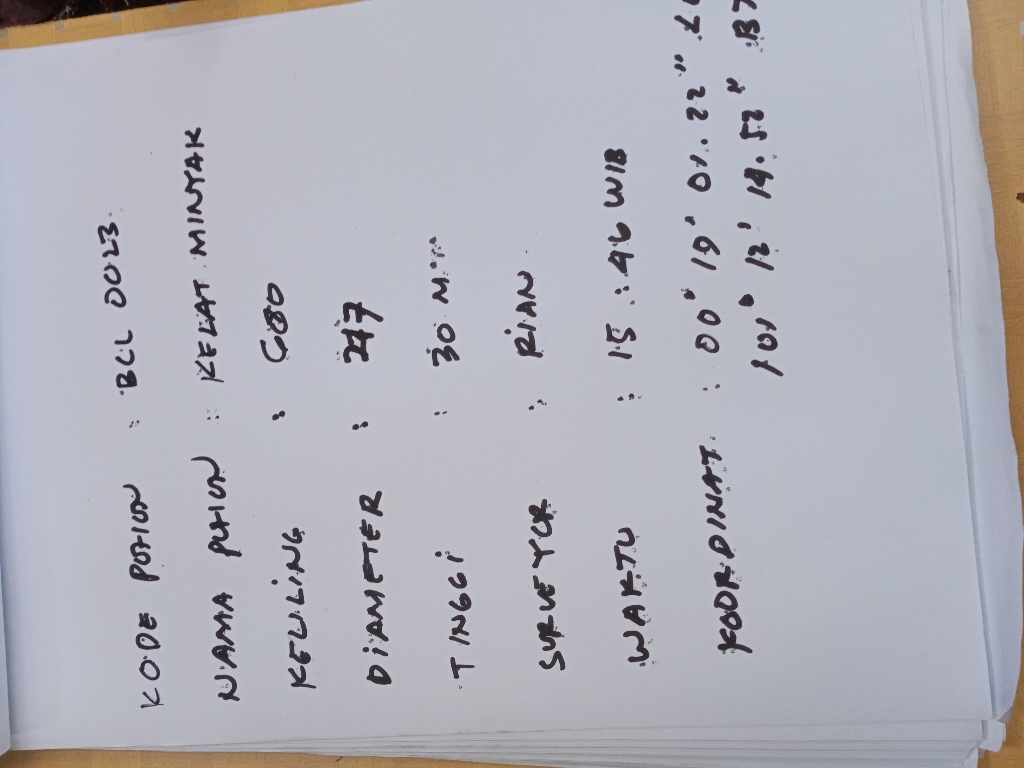 KODE POHON : BCL 0023.
NAMA POHON : KELAT MINYAK
KELILING : 680
DiAMETER : 217
TINGGi : 30 M
SURVEYOR : RiAN.
WAKTU : 15:46 WIB
KOORDINAT. : 00° 19' 01.22"
101° 12' 14.52" BT